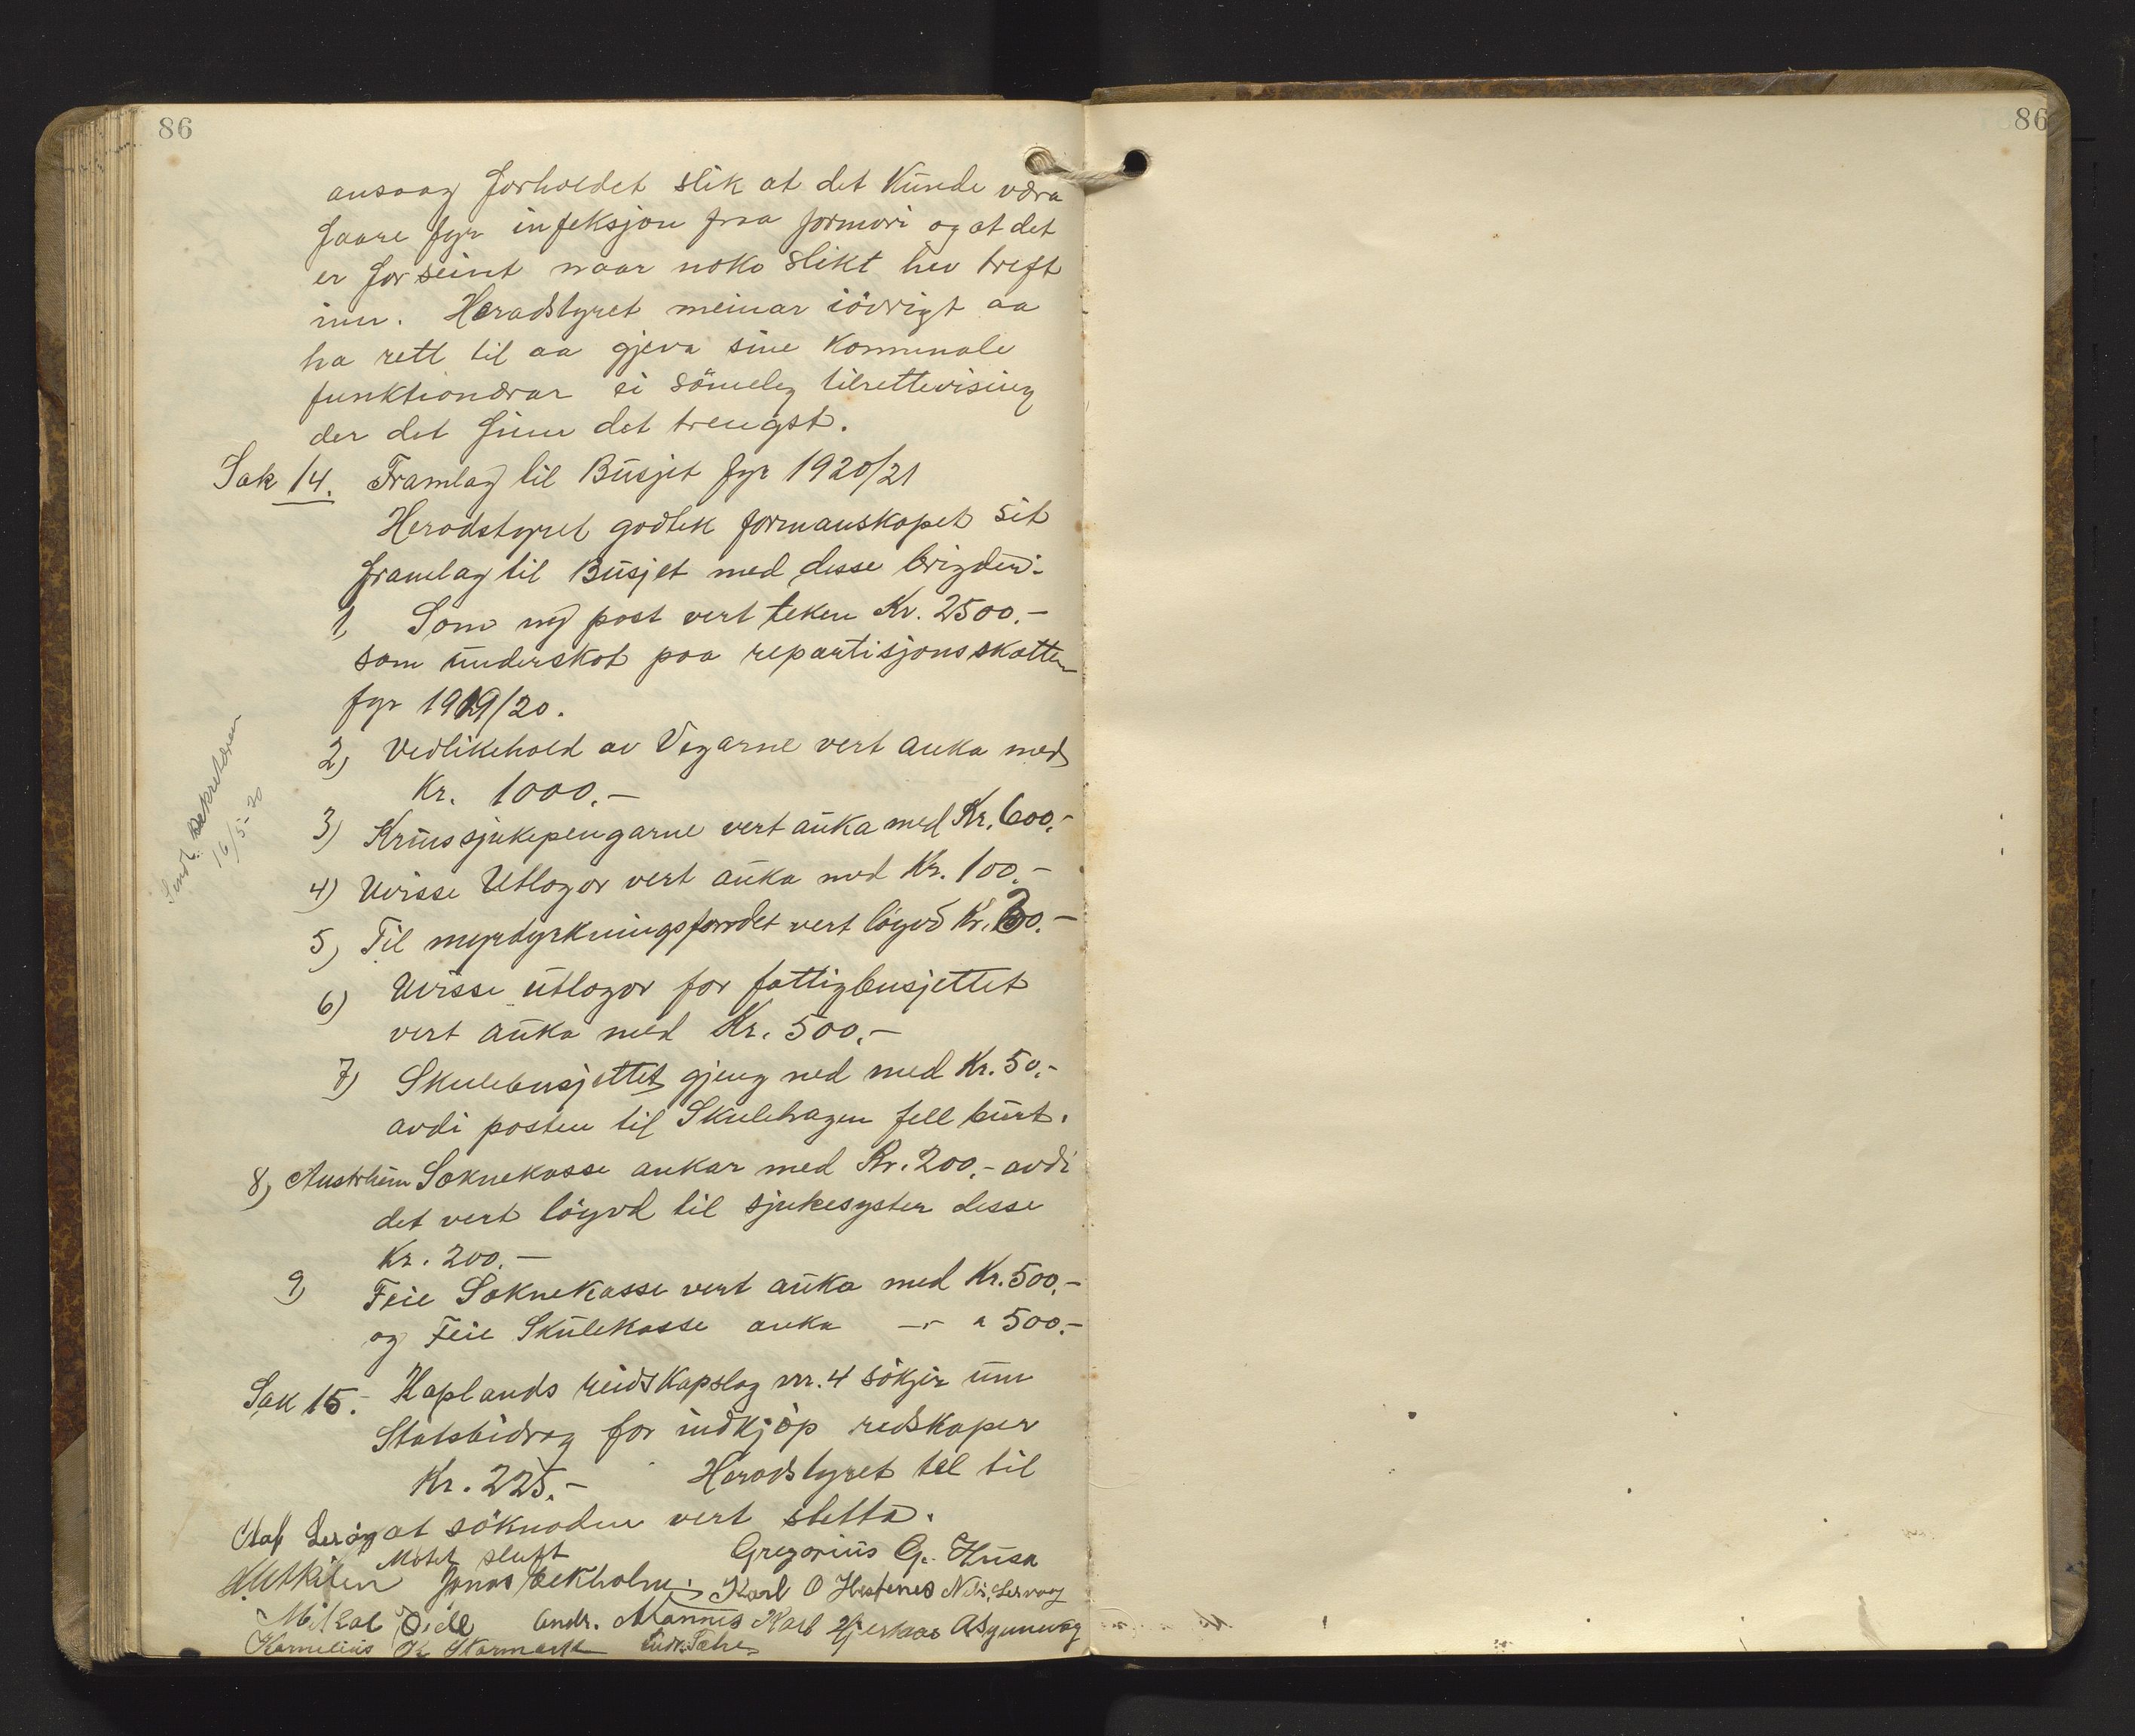 86
ansaag forholdet slik at det kunde væra
faare fyr infeksjon fraa jormori og at det
er for seint naar noko slikt hev treft
inn. Heradstyret meinar iövrigt aa
ha rett til aa gjeva sine kommunale
funktionærar ei sömeleg tilrettevising
der det finn det trengst.
Sak 14. Framlag til Busjet fyr 1920/21
Heradstyret godtek formanskapet sit
framlag til Busjet med desse brigder:
1, Som ny post vert teken Kr. 2500.-
som underskot paa repartisjonsskatten
fyr 1919/20.
2, Vedlikehold av Vegarne vert auka med
Kr. 1000.-
3) Krinssjukepengarne vert auka med Kr. 600.-
4) Uvisse Utlogor vert auka med Kr. 100.-
5, Til myrdyrkningsfondet vert löyvd Kr.
6) Uvisse utlogor for fattigbusjettet
vert auka med Kr. 500.-
7) Skulebusjettet gjeng ned med Kr. 50.-
avdi posten til Skulehagen fell burt.
8, Austrheim Soknekasse aukar med Kr. 200.- avdi
det vert löyvd til sjukesyster desse
Kr. 200.-
9, Feie Soknekasse vert auka med Kr. 500.-
og Feie Skulekasse auka -"- " 500.-
Sak 15.- Kaplands reidskapslag nr. 4 sökjer um
Statsbidrag for indkjöp redskaper
Kr. 225.- Heradstyret tel til
at söknaden vert stetta.
Olaf Leröy
Mötet sluft
Gregorius G. Husa
Jonas Bekholm. Karl O Hestenes Nils Lervaag
Mikal Andr. Mannes Karl
Kornelius
Sendt Sekretæren
16/5-20
86